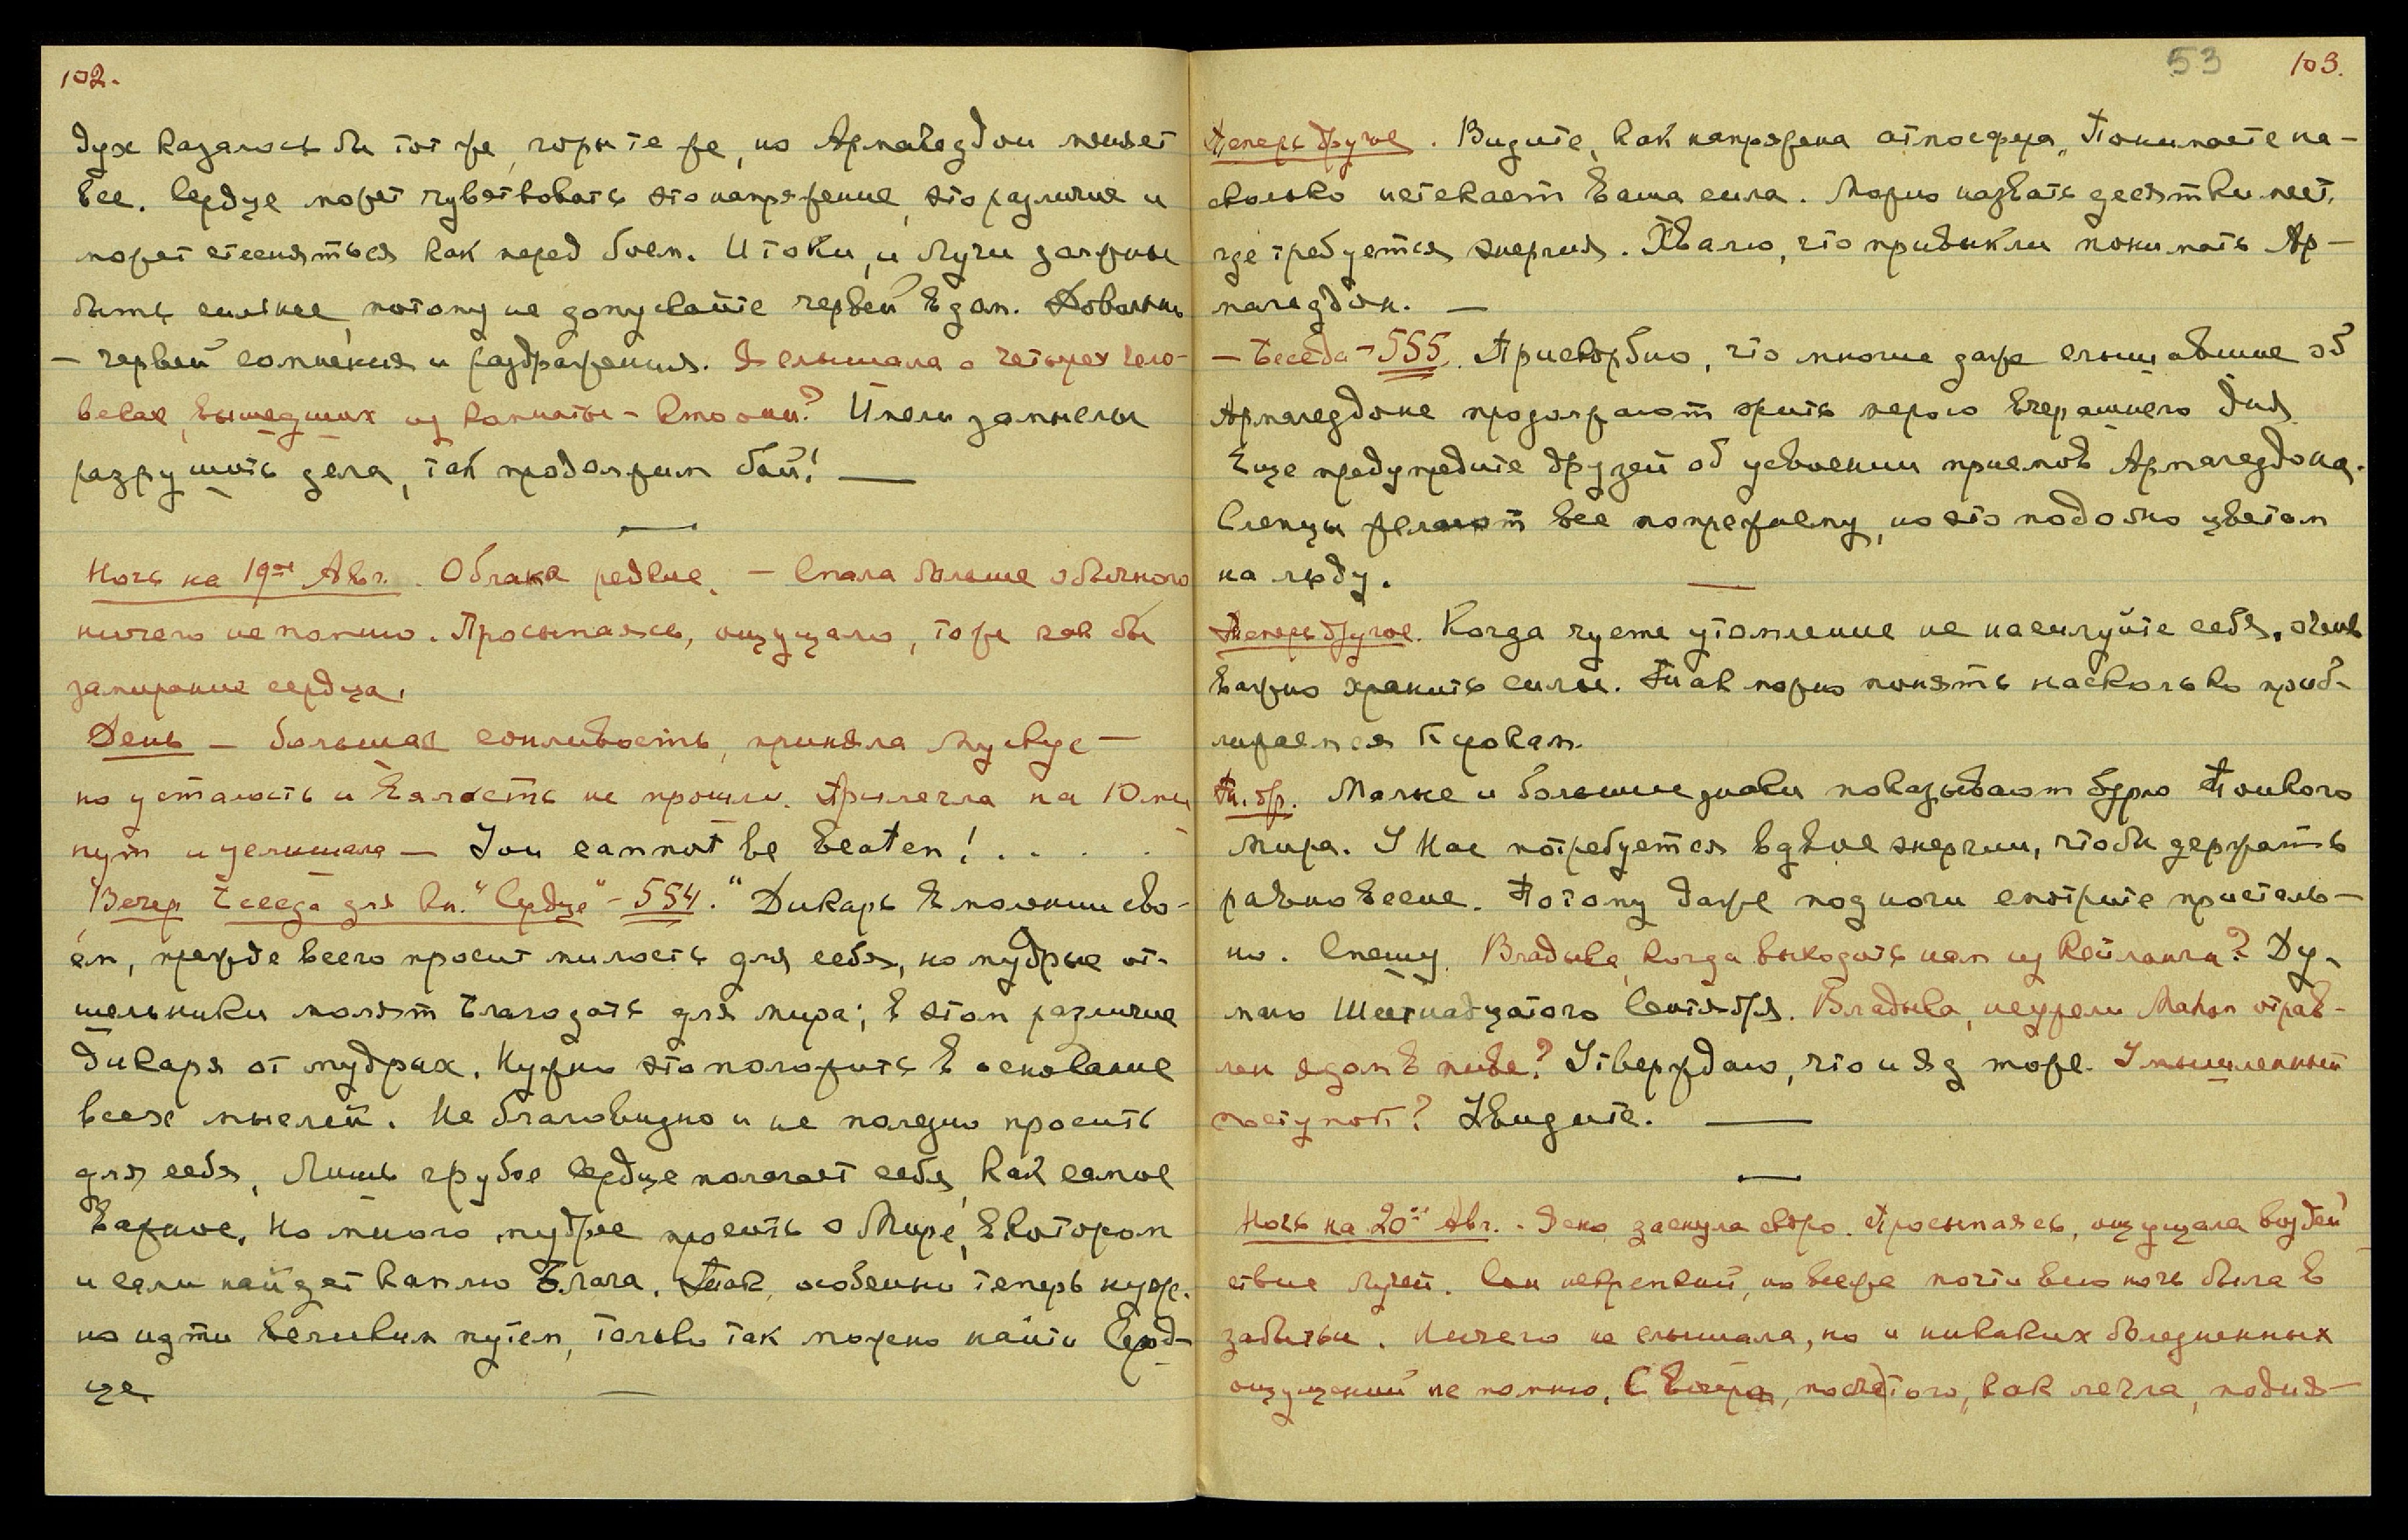 102.
дух казалось бы тот же, горы те же, но Армагеддон меняет
все. Сердце может чувствовать это напряжение, это различие и
может стесняться как перед боем. И токи, и Лучи должны
быть сильнее, потому не допускайте червей в дом. Довольно
— червей сомнения и раздражения. Я слышала о четырех чело-
веках, вышедших из комнаты - кто они? Имели замыслы
разрушить дела, так продолжим бой! —
Ночь на 19ое Авг. Облака редкие. — Спала больше обычного
ничего не помню. Просыпаясь, ощущаю, тоже как бы
замирание сердца.
День — большая сонливость, приняла Мускус —
но усталость и вялость не прошли. Прилегла на 10 ми
нут и услышала — You cannot be beaten! . . . .
Вечер Беседа для Кн. "Сердце" - 554. "Дикарь в молении сво-
ем, прежде всего просит милость для себя, но мудрые от-
шельники молят благодать для мира; в этом различие
дикаря от мудрых. Нужно это положить в основание
всех мыслей. Не благовидно и не полезно просить
для себя. Лишь грубое Сердце полагает себя, как самое
важное. Но много мудрее просить о Мире, в котором
и сами найдет каплю Блага. Так, особенно теперь нуж-
но идти великим путем, только так можно найти Серд-
це. —
53 103.
Теперь другое. Видите, как напряжена атмосфера. Понимаете на-
сколько истекает ваша сила. Можно назвать десятки мест,
где требуется энергия. Хвалю, что привыкли понимать Ар-
магеддон. —
— Беседа - 555. Прискорбно, что многие даже слышавшие об
Армагеддоне продолжают жить мерою вчерашнего дня.
Еще предупредите друзей об усвоении приемов Армагеддона.
Слепцы желают все попрежнему, но это подобно цветам
на льду. —
Теперь другое. Когда чуете утомление не насилуйте себя, очень
важно хранить силы. Так можно понять насколько приб-
лижается Пуокам.
Т. др. Малые и большие знаки показывают бурю Тонкого
Мира. У Нас потребуется вдвое энергии, чтобы держать
равновесие. Потому даже под ноги смотрите пристель-
но. Спешу. Владыка, когда выходить нам из Кейланга? Ду-
маю Шестнадцатого Сентября. Владыка, неужели Mahon отрав-
лен ядом в пиве? Утверждаю, что и яд тоже. Умышленный
поступок? Увидите. —
Ночь на 20ое Авг. - Ясно, заснула скоро. Просыпаясь, ощущала воздей
ствие Лучей. Сон некрепкий, но все же почти всю ночь была в
забытьи. Ничего не слышала, но и никаких болезненных
ощущений не помню. С Вечера, после того, как легла, подня-